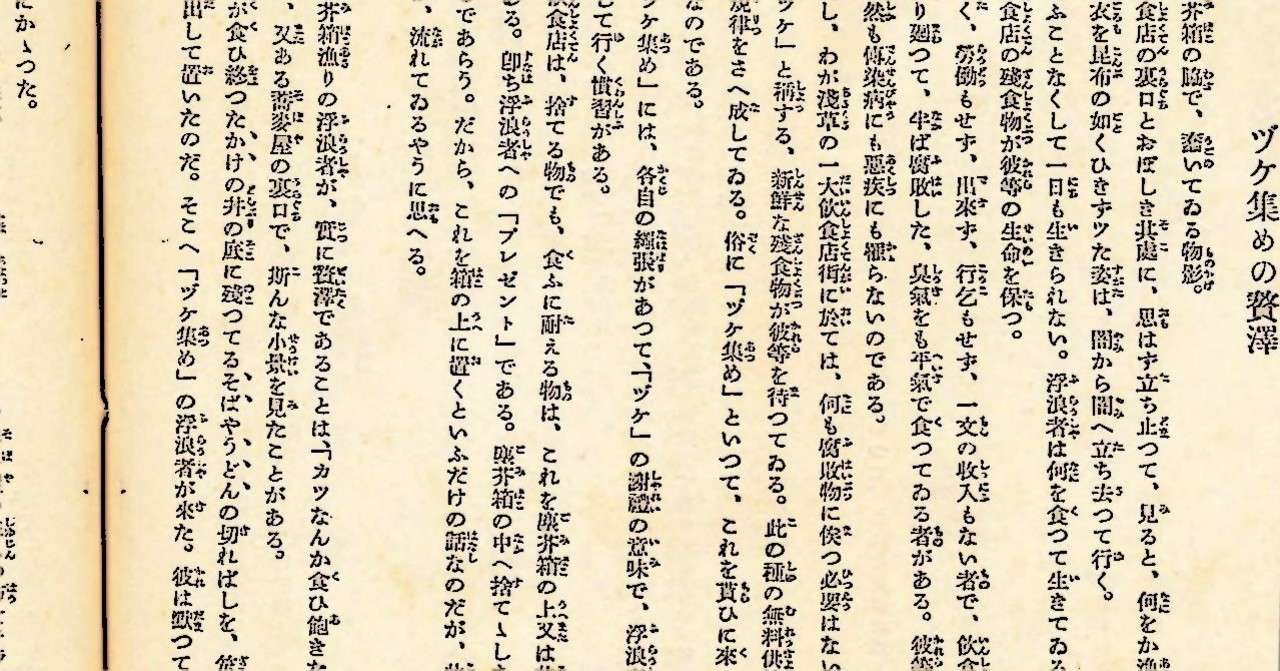 ヅケ集めの贅澤
芥箱の脇で、蠢いてゐる物影。
食店の裏口とおぼしき其處に、思はず立ち止つて、見ると、何をか漁
衣を昆布の如くひきずツた姿は、闇から闇へ立ち去つて行く。
ふことなくして一日も生きられない。浮浪者は何を食つて生きてゐる
食店の殘食物が彼等の生命を保つ。
く、勞働もせず、出來ず、行乞もせず、一文の收入もない者で、飮食
り廻つて、半ば腐敗した、臭氣をも平氣で食つてゐる者がある。彼等
然も傳染病にも惡疾にも罹らないのである。
し、わが淺草の一大飮食店街に於ては、何も腐敗物に俟つ必要はない
ツケ」と稱する、新鮮な殘食物が彼等を待つてゐる。此の種の無料供
規律をさへ成してゐる。俗に「ヅケ集め」といつて、これを貰ひに來
なのである。
ツケ集め」には、各自の繩張があつて、「ヅケ」の謝禮の意味で、浮浪
して行く慣習がある。
飮食店は、捨てる物でも、食ふに耐える物は、これを塵芥箱の上又は
る。卽ち浮浪者への「プレゼント」である。塵芥箱の中へ捨てゝし
であらう。だから、これを箱の上に置くといふだけの話なのだが、
、流れてゐるやうに思へる。
芥箱漁りの浮浪者が、實に贅澤であることは、「カツなんか食ひ飽き
、又ある蕎麥屋の裏口で、斯んな小景を見たことがある。
が食ひ終つたかけの丼の底に殘つてるそばやうどんの切ればしを、
出して置いたのだ。そこへ「ヅケ集め」の浮浪者が來た。彼は默つて
にかゝつた。